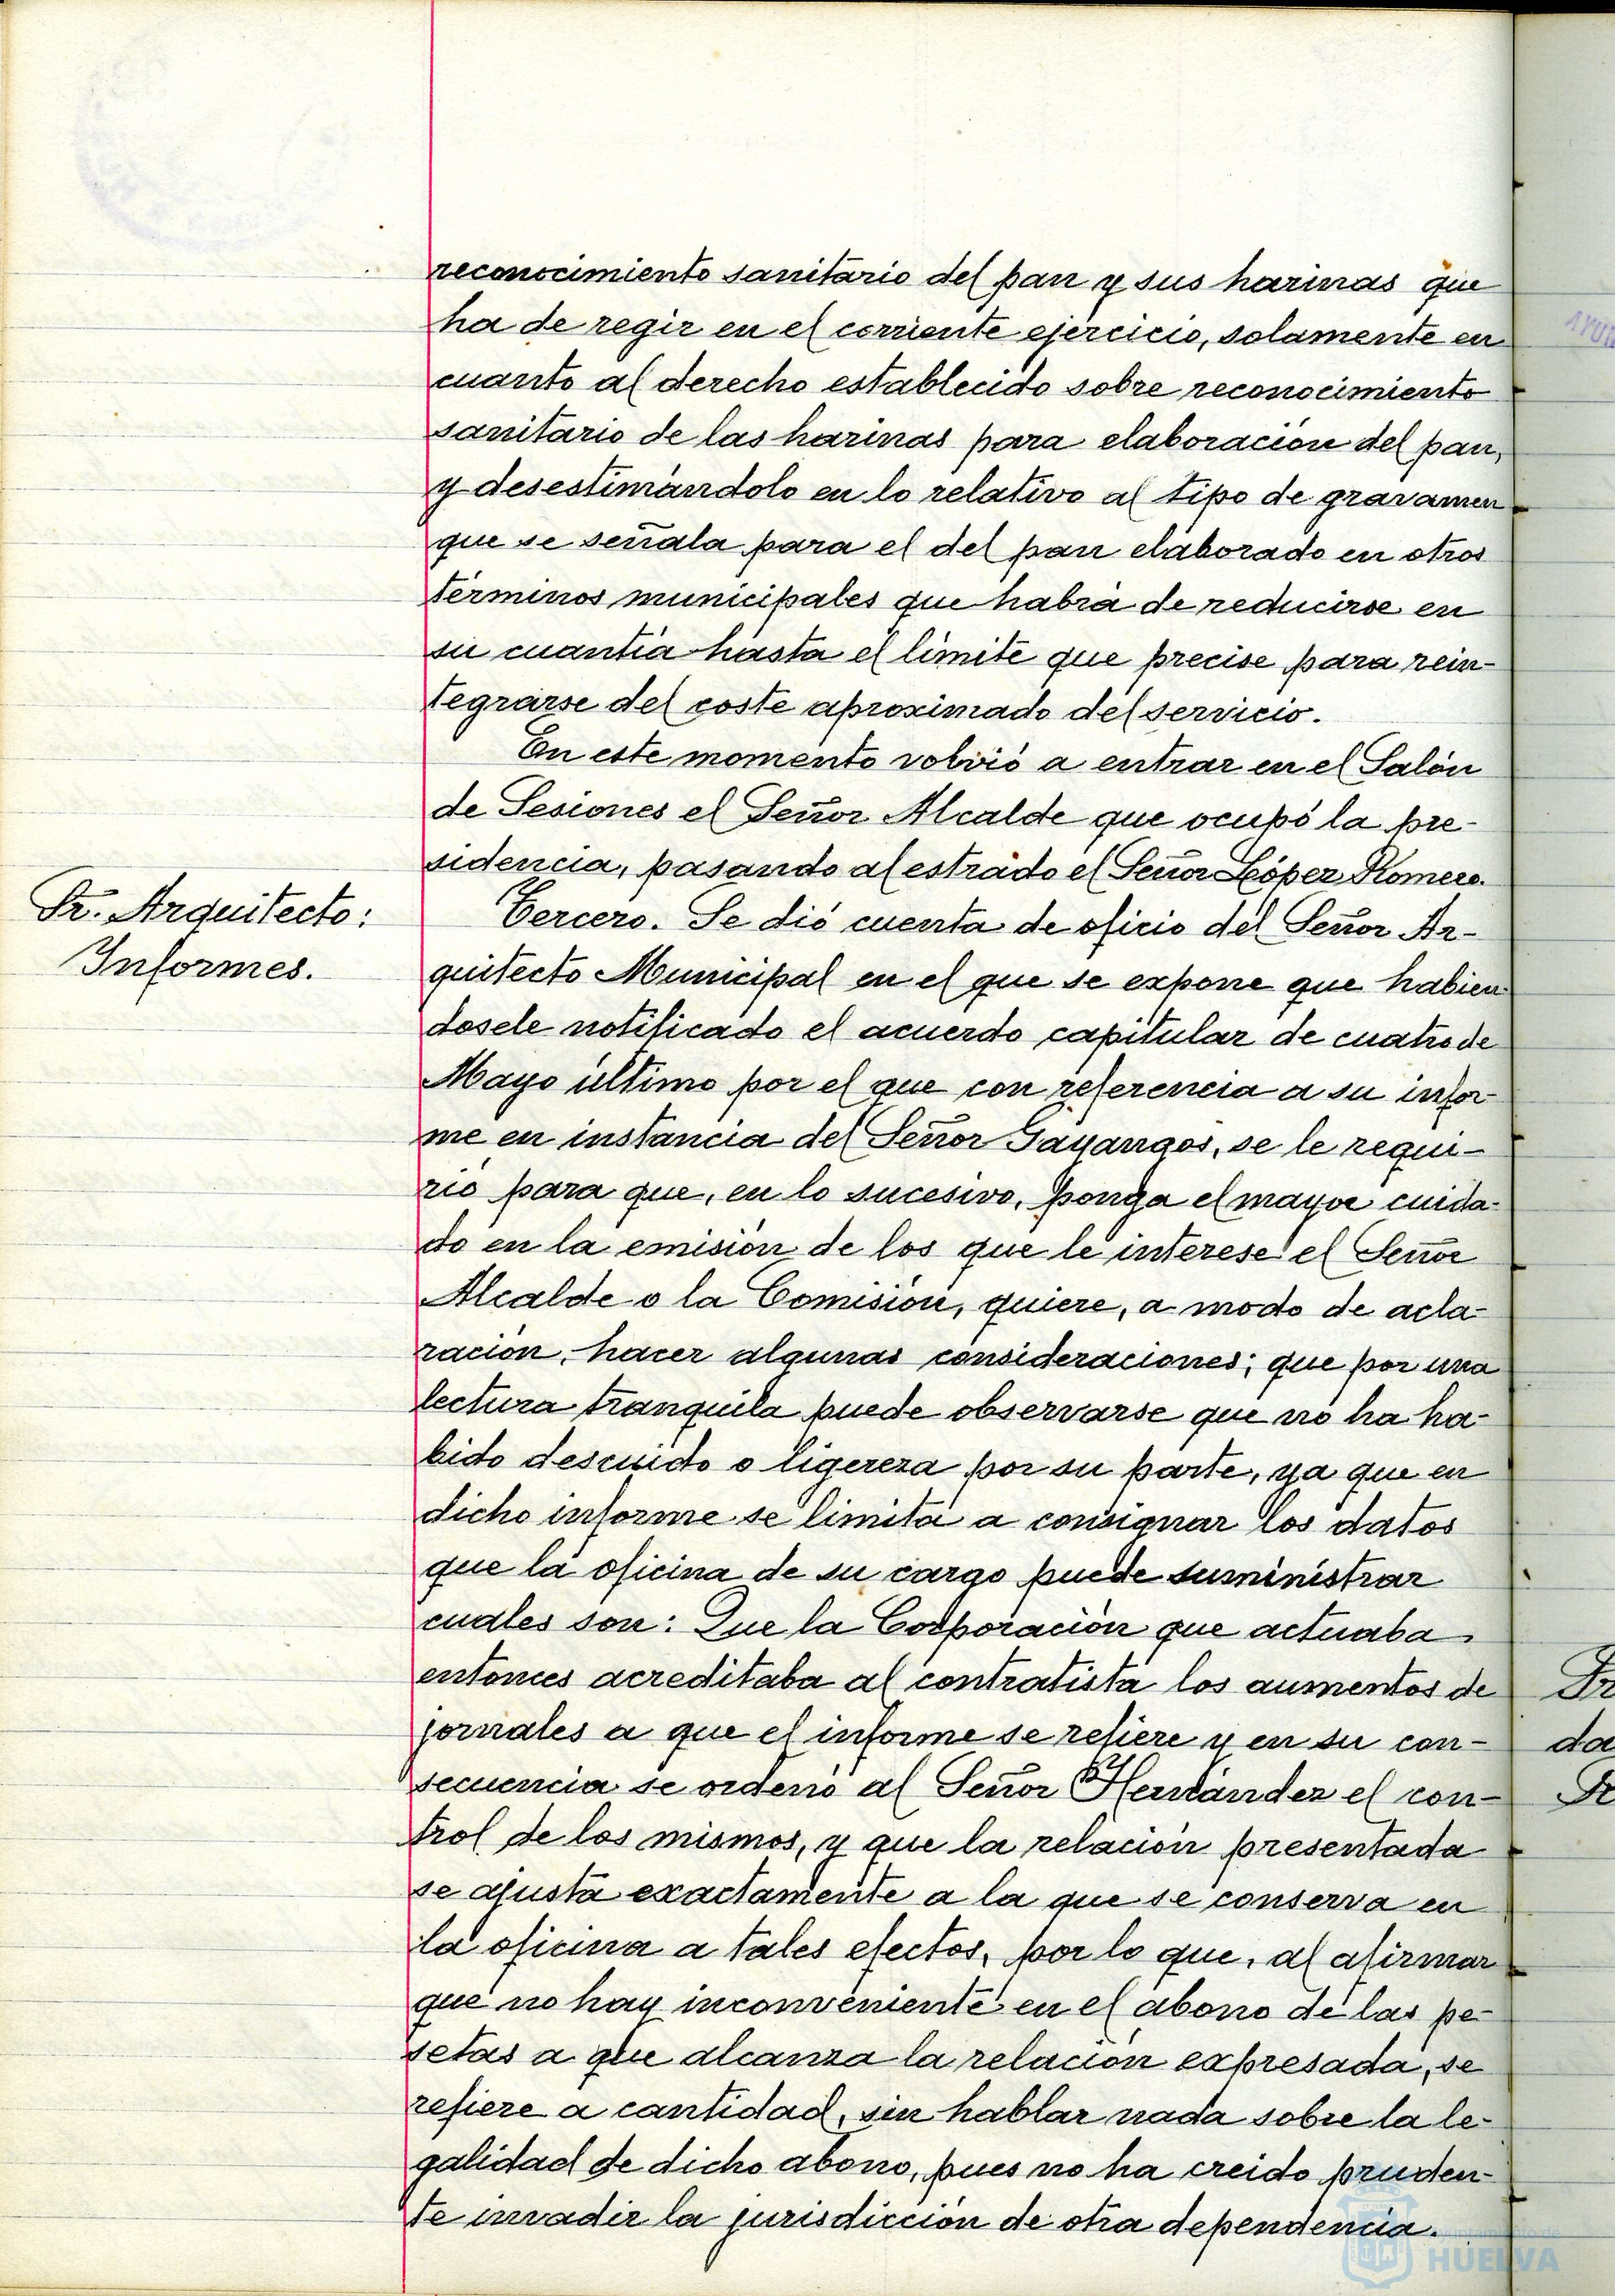 reconocimiento sanitario del pan y sus harinas que
ha de regir en el corriente ejercicio, solamente en
cuanto al derecho establecido sobre reconocimiento
sanitario de las harinas para elaboración del pan,
y desestimándolo en lo relativo al tipo de gravamen
que se señala para el del pan elaborado en otros
términos municipales que habrá de reducirse en
su cuantía hasta el límite que precise para rein-
tegrarse del coste aproximado del servicio.
En este momento volvió a entrar en el Salón
de Sesiones el Señor Alcalde que ocupó la pre-
sidencia, pasando al estrado el Señor López Romero.
Sr. Arquitecto:
Informes.
Tercero. Se dió cuenta de oficio del Señor Ar-
quitecto Municipal en el que se expone que habien-
dosele notificado el acuerdo capitular de cuatro de
Mayo último por el que con referencia a su infor-
me en instancia del Señor Gayangos, se le requi-
rió para que, en lo sucesivo, ponga el mayor cuida-
do en la emisión de los que le interese el Señor
Alcalde o la Comisión, quiere, a modo de acla-
ración, hacer algunas consideraciones; que por una
lectura tranquila puede observarse que no ha ha-
bido descuido o ligereza por su parte, ya que en
dicho informe se limita a consignar los datos
que la oficina de su cargo puede suministrar
cuales son: Que la Corporación que actuaba
entonces acreditaba al contratista los aumentos de
jornales a que el informe se refiere y en su con-
secuencia se ordenó al Señor Hernández el con-
trol de los mismos, y que la relación presentada
se ajusta exactamente a la que se conserva en
la oficina a tales efectos, por lo que, al afirmar
que no hay inconveniente en el abono de las pe-
setas a que alcanza la relación expresada, se
refiere a cantidad, sin hablar nada sobre la le-
galidad de dicho abono, pues no ha creido pruden-
te invadir la jurisdicción de otra dependencia.
HUELVA